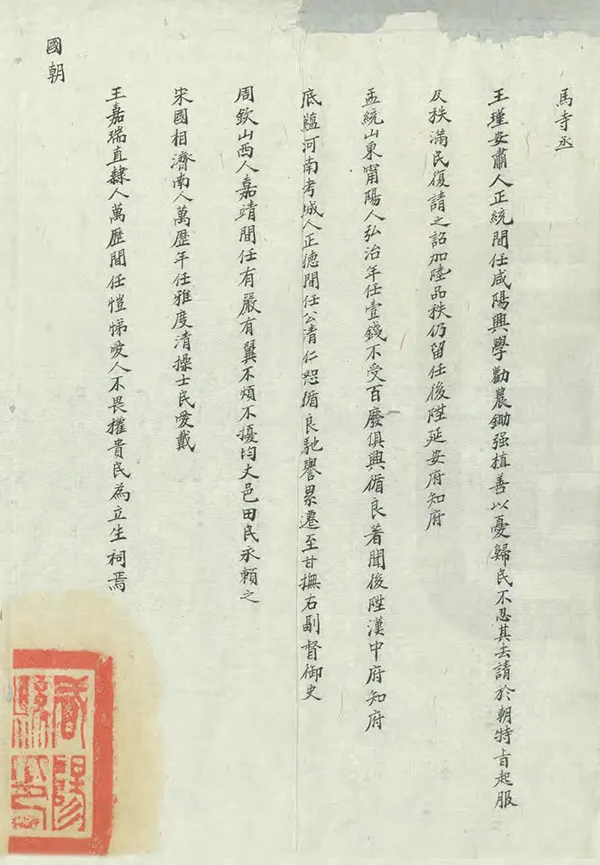 馬寺丞
王瑾安肅人正統間任咸陽興學勸農鋤强植善以憂歸民不忍其去請於朝特旨起服
及秩滿民復請之詔加陸品秩仍留任後陞延安府知府
孟統山東甯陽人弘治年任壹錢不受百廢俱興循良著聞後陞漢中府知府
底蘊河南考城人正德間任公清仁恕循良馳譽累遷至甘撫右副督御史
周欽山西人嘉靖間任有嚴有翼不煩不擾均丈邑田民永賴之
宋國相濟南人萬歷年任雅度清操士民愛戴
王嘉瑞直隸人萬歷間任愷悌愛人不畏權貴民為立生祠焉
國朝
咸陽縣印